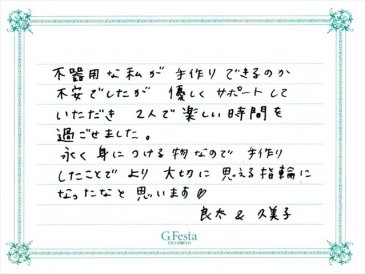 不器用な私が 手作りできるのか
不安でしたが 優しくサポートして
いただき 2人で楽しい時間を
過ごせました。
永く身につける物なので 手作り
したことで より 大切に 思える指輪に
なったなと 思います♡
良太 & 久美子
G.Festa
DIAMOND